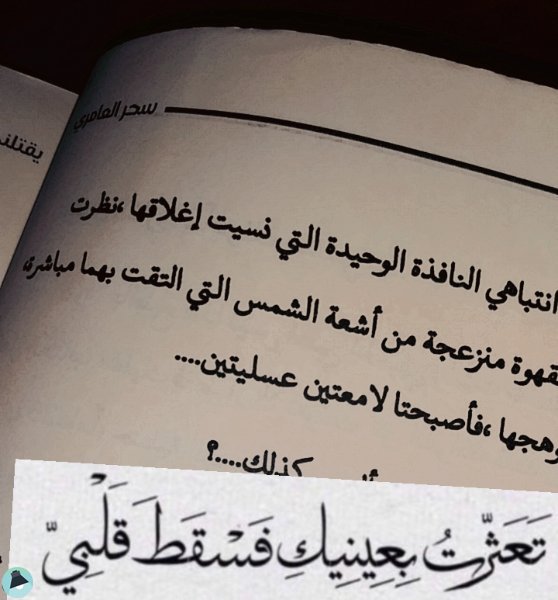 سحر العامري
انتباهي النافذة الوحيدة التي نسيت إغلاقها ،نظرت
قهوة منزعجة من أشعة الشمس التي التقت بهما مباشرة،
وهجها ،فأصبحتا لامعتين عسليتين....
كذلك....؟
تَعَثَّرتُ بِعِينِيكِ فَسْقَطَ قَلْبِي